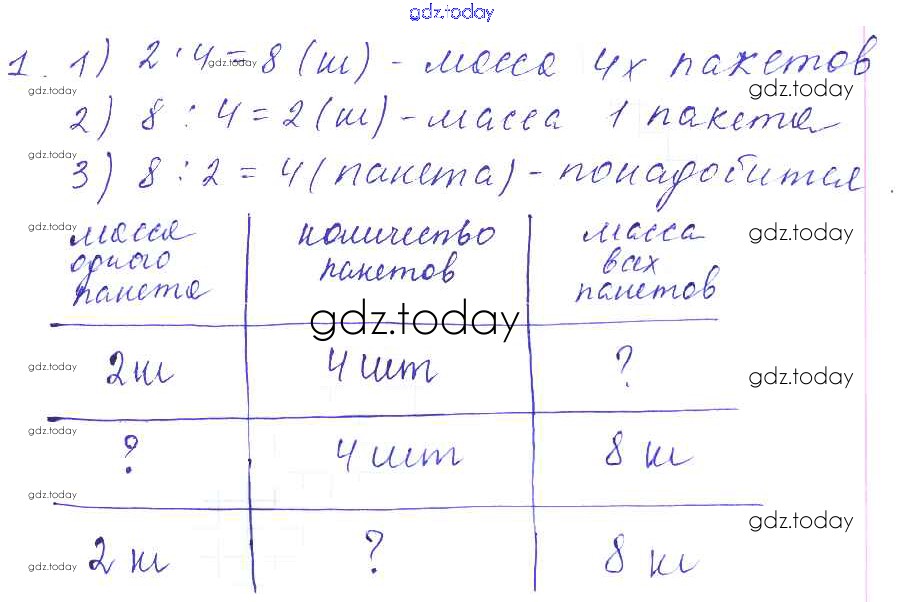 gdz.today
1. 1) 2 · 4 = 8 (кг) - масса 4х пакетов
2) 8 : 4 = 2 (кг) - масса 1 пакета
3) 8 : 2 = 4 (пакета) - понадобится.
масса количество масса
одного пакетов всех
пакета пакетов
gdz.today
2 кг 4 шт ?
? 4 шт 8 кг
2 кг ? 8 кг
gdz.today
gdz.today
gdz.today
gdz.today
gdz.today
gdz.today
gdz.today
gdz.today
gdz.today
gdz.today
gdz.today
gdz.today